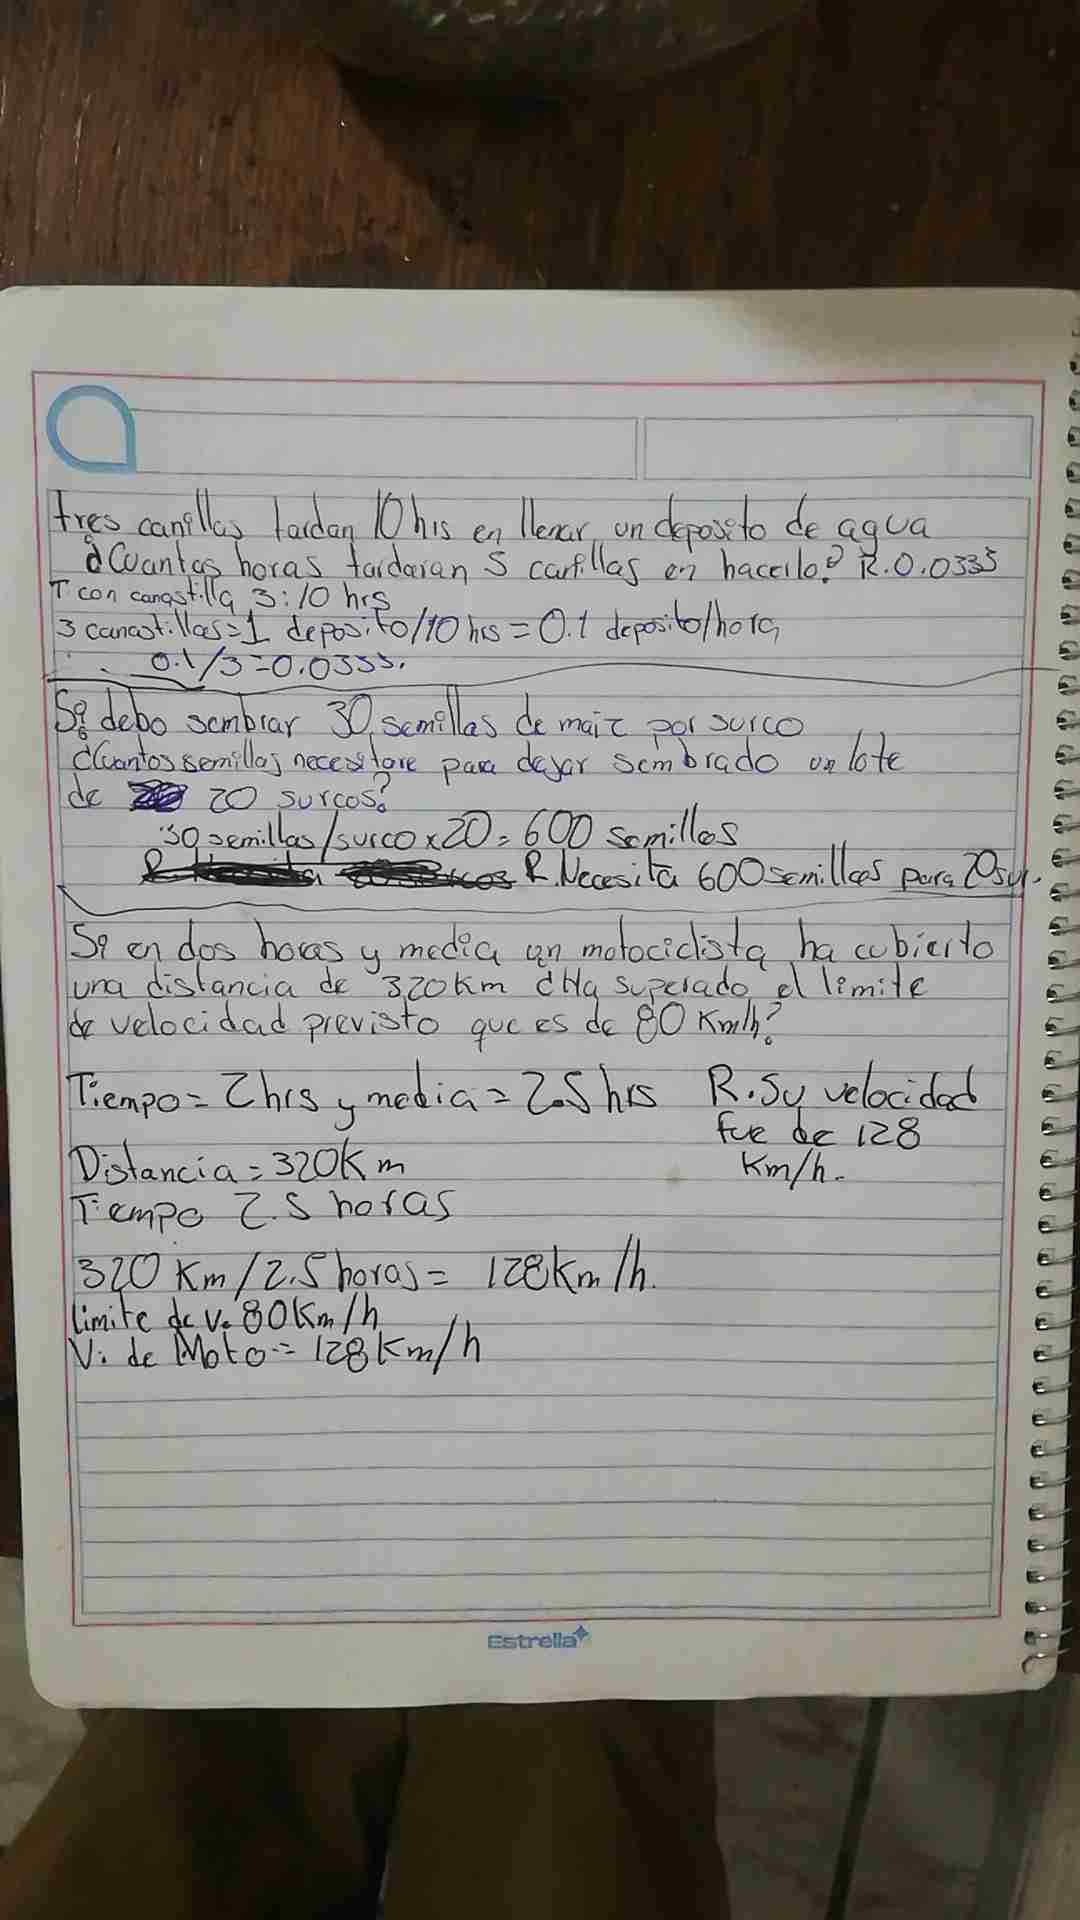 tres canillas tardan 10 hrs en llenar un deposito de agua
¿Cuantas horas tardaran 5 canillas en hacerlo? R.0.0333
T con canastilla 3:10 hrs
3 canastillas=1 deposito/10 hrs = 0.1 deposito/hora
0.1/3=0.0333.
Si debo sembrar 30 semillas de maiz por surco
¿Cuantos semillas necesitare para dejar sembrado un lote
de 20 surcos?
30 semillas/surco x 20 = 600 semillas
R. Necesita 600 semillas para 20 sur.
Si en dos horas y media un motociclista ha cubierto
una distancia de 320Km ¿Ha superado el limite
de velocidad previsto que es de 80 Km/h?
Tiempo = 2 hrs y media = 2.5 hrs R. Su velocidad
fue de 128
Km/h.
Distancia = 320Km
Tiempo 2.5 horas
320 Km/2.5 horas = 128km/h.
limite de v. 80Km/h
V. de Moto = 128Km/h
Estrella